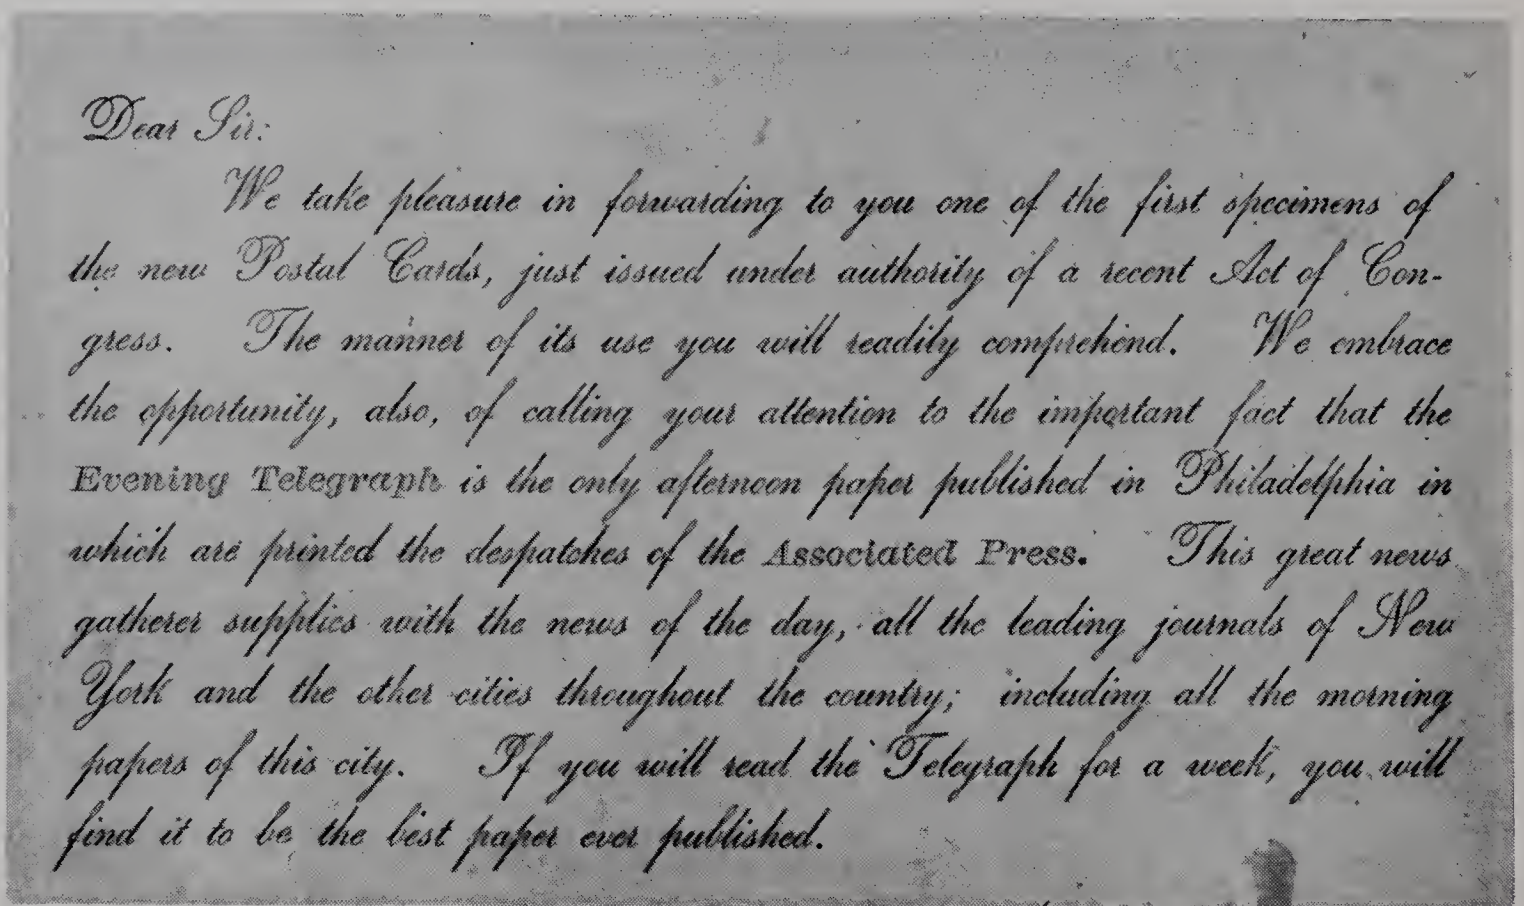 Dear Sir:
We take pleasure in forwarding to you one of the first specimens of
the new Postal Cards, just issued under authority of a recent Act of Con-
gress. The manner of its use you will readily comprehend. We embrace
the opportunity, also, of calling your attention to the important fact that the
Evening Telegraph is the only afternoon paper published in Philadelphia in
which are printed the despatches of the Associated Press. This great news
gatherer supplies with the news of the day, all the leading journals of New
York and the other cities throughout the country; including all the morning
papers of this city. If you will read the Telegraph for a week, you will
find it to be the best paper ever published.